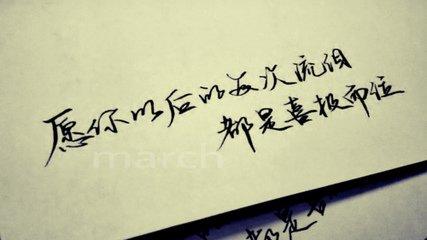 愿你以后的每次流泪
都是喜极而泣
march
都是